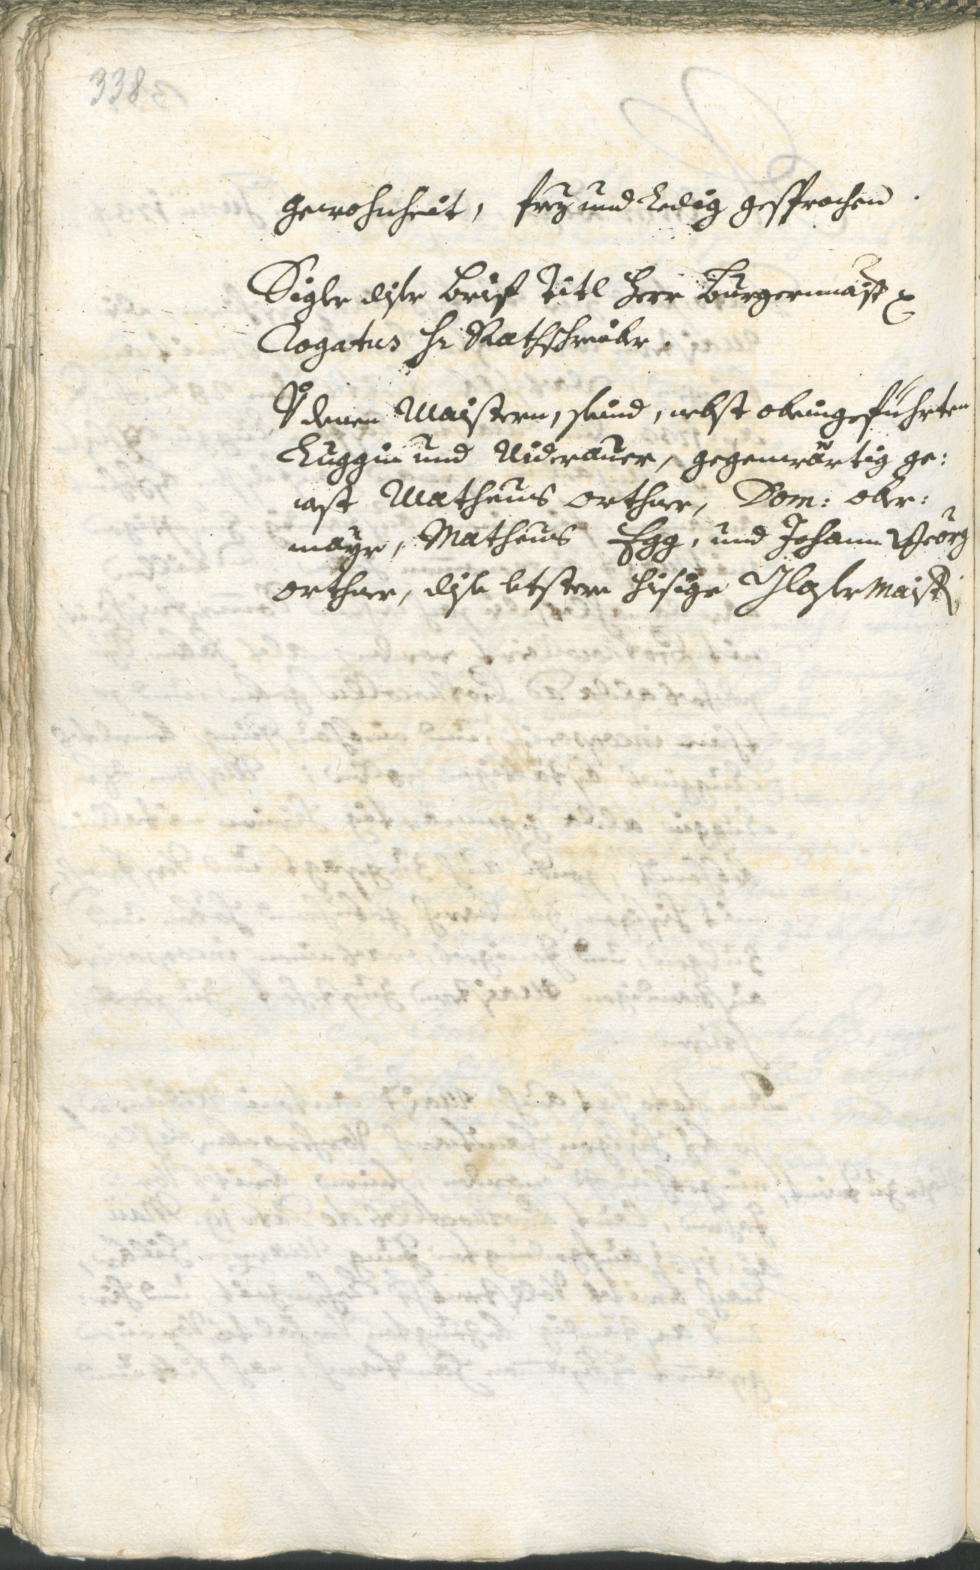 338
gewohnheit, frey und Ledig gesprochen.
Sigler diser Brief Titl Herr Burgermaist
Rogatus H: Rathschreiber.
V denen Maistern, seind, nebst obeingeführten
Luggin und Niderauer, gegenwärtig ge:
west Matheus orthner, Dom: ober:
mayr, Matheus Egg, und Johann Georg
orthner, dise letstere hisige Glaser Maist: